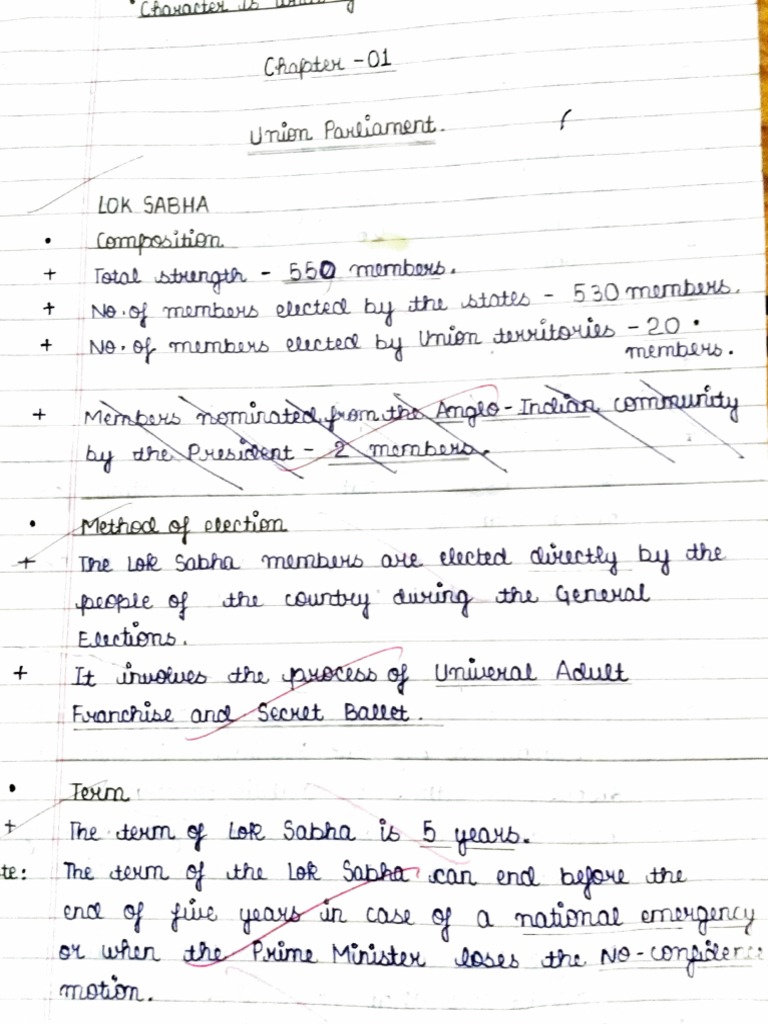 Character is
Chapter - 01
Union Parliament.
LOK SABHA
• Composition
+ Total strength - 550 members.
+ No. of members elected by the states - 530 members.
+ No. of members elected by Union territories - 20
members.
+ Members nominated from the Anglo-Indian community
by the President - 2 members.
• Method of election
+ The Lok Sabha members are elected directly by the
people of the country during the General
Elections.
+ It involves the process of Univeral Adult
Franchise and Secret Ballet.
• Term
+ The term of Lok Sabha is 5 years.
te: The term of the Lok Sabha can end before the
end of five years in case of a national emergency
or when the Prime Minister loses the No-confidence
motion.